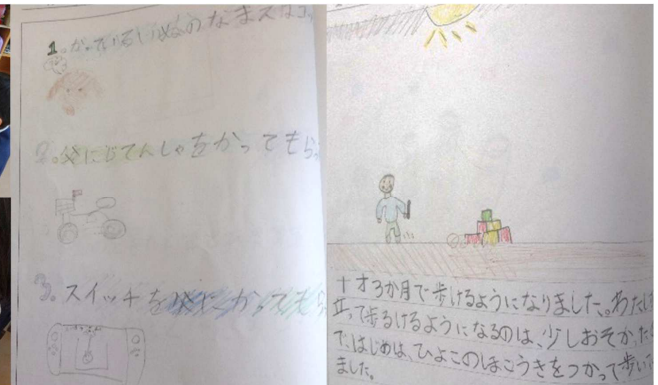 1.かっているいぬのなまえは
2.父にじてんしゃをかってもら
3.スイッチを かってもら
十才3か月で歩けるようになりました。あたし
立って歩るけるようになるのは、少しおそかった
で、はじめは、ひよこのほこうきをつかって歩い
ました。